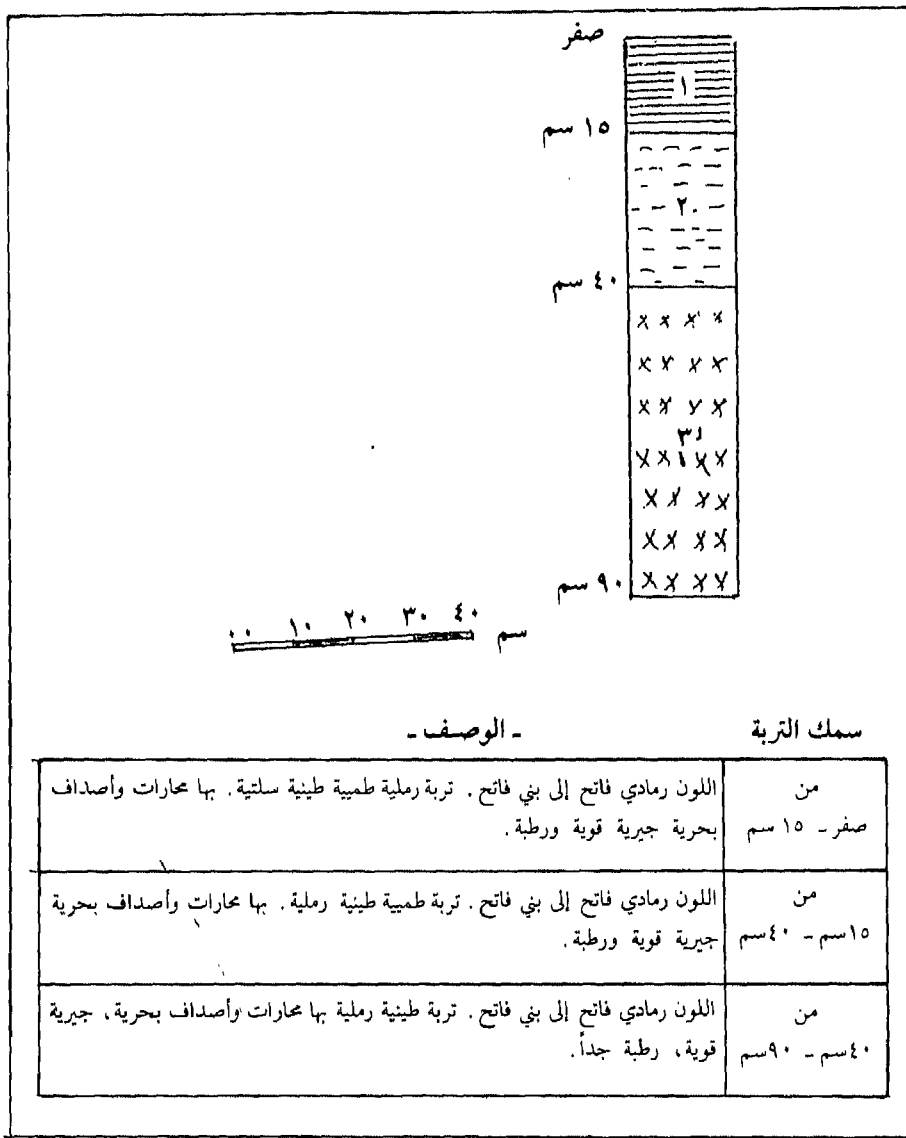 صفر
١
١٥ سم
٢٠
٤٠ سم
٣
٩٠ سم
٠٠ ١٠ ٢٠ ٣٠ ٤٠ سم
سمك التربة - الوصف -
من
صفر - ١٥ سم
اللون رمادي فاتح إلى بني فاتح . تربة رملية طميية طينية سلتية . بها محارات وأصداف
بحرية جيرية قوية ورطبة .
من
١٥سم - ٤٠سم
اللون رمادي فاتح إلى بني فاتح . تربة طميية طينية رملية . بها محارات وأصداف بحرية
جيرية قوية ورطبة .
من
٤٠سم - ٩٠سم
اللون رمادي فاتح إلى بني فاتح . تربة طينية رملية بها محارات وأصداف بحرية ، جيرية
قوية ، رطبة جداً .